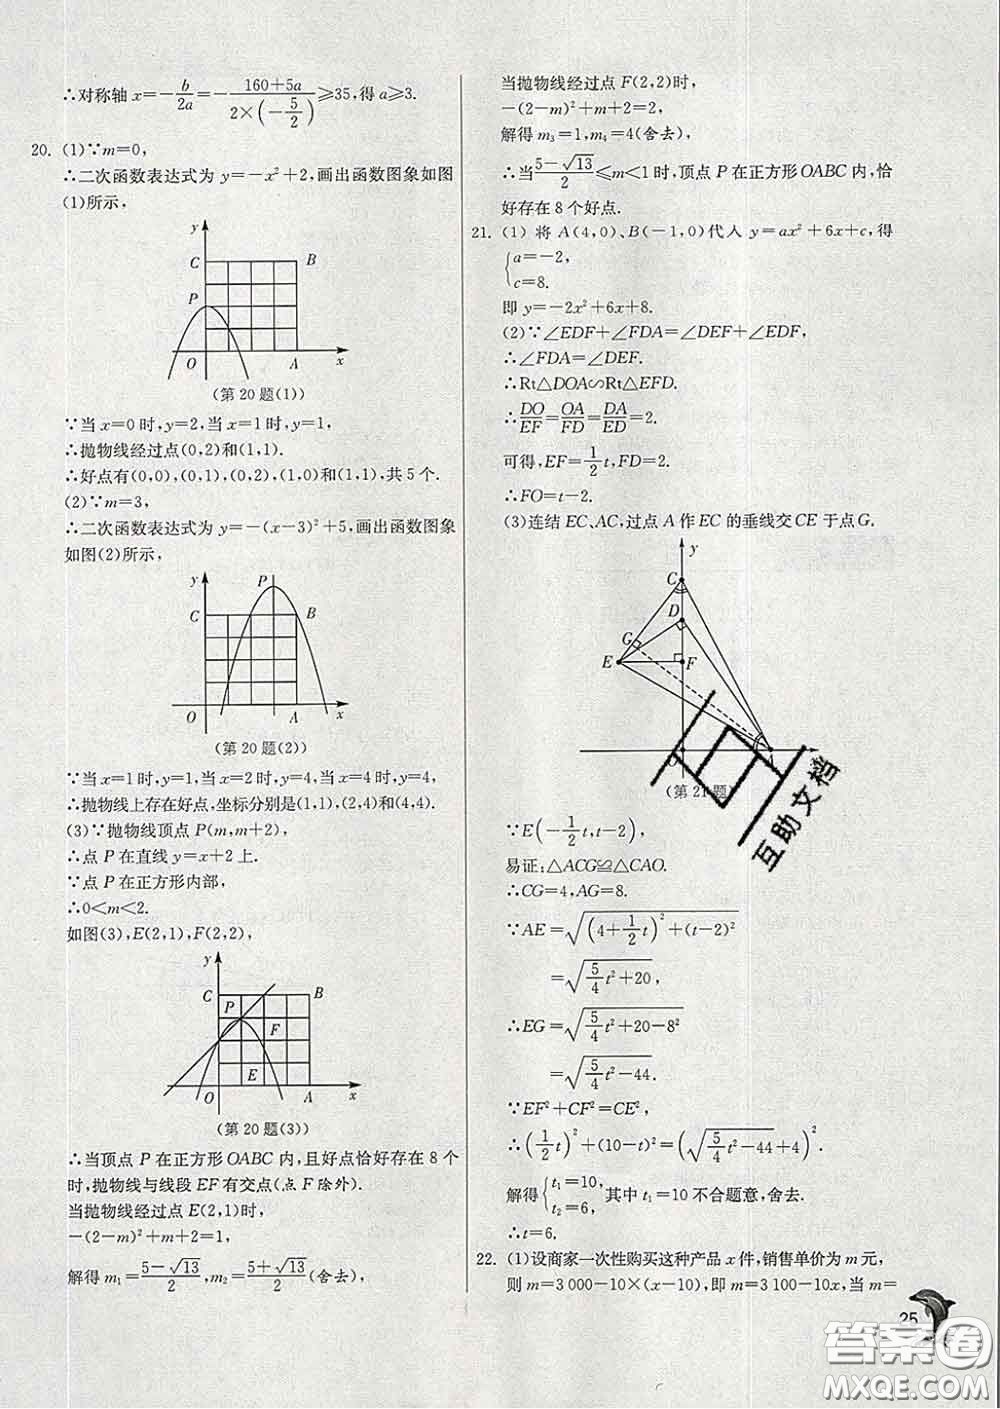 ∴对称轴 x=-b/2a=-(160+5a)/(2×(-5/2))≥35,得 a≥3.
20. (1)∵m=0,
∴二次函数表达式为 y=-x²+2,画出函数图象如图
(1)所示,
y
C B
P
O A x
(第 20 题(1))
∵当 x=0 时,y=2,当 x=1 时,y=1,
∴抛物线经过点(0,2)和(1,1).
∴好点有(0,0),(0,1),(0,2),(1,0)和(1,1),共 5 个.
(2)∵m=3,
∴二次函数表达式为 y=-(x-3)²+5,画出函数图象
如图(2)所示,
y P
C B
O A x
(第 20 题(2))
∵当 x=1 时,y=1,当 x=2 时,y=4,当 x=4 时,y=4,
∴抛物线上存在好点,坐标分别是(1,1),(2,4)和(4,4).
(3)∵抛物线顶点 P(m,m+2),
∴点 P 在直线 y=x+2 上.
∵点 P 在正方形内部,
∴0<m<2.
如图(3),E(2,1),F(2,2),
y
C B
P
F
E
O A x
(第 20 题(3))
∴当顶点 P 在正方形 OABC 内,且好点恰好存在 8 个
时,抛物线与线段 EF 有交点(点 F 除外).
当抛物线经过点 E(2,1)时,
-(2-m)²+m+2=1,
解得 m₁=(5-√13)/2,m₂=(5+√13)/2(舍去),
当抛物线经过点 F(2,2)时,
-(2-m)²+m+2=2,
解得 m₃=1,m₄=4(舍去),
∴当(5-√13)/2≤m<1 时,顶点 P 在正方形 OABC 内,恰
好存在 8 个好点.
21. (1) 将 A(4,0)、B(-1,0)代人 y=ax²+6x+c,得
{a=-2,
c=8.
即 y=-2x²+6x+8.
(2)∵∠EDF+∠FDA=∠DEF+∠EDF,
∴∠FDA=∠DEF.
∴Rt△DOA∽Rt△EFD.
∴DO/EF=OA/FD=DA/ED=2.
可得,EF=1/2t,FD=2.
∴FO=t-2.
(3)连结 EC、AC,过点 A 作 EC 的垂线交 CE 于点G.
y
C
D
G
E F
(第 21 题)
∵E(-1/2t,t-2),
易证:△ACG≌△CAO.
∴CG=4,AG=8.
∵AE=√((4+1/2t)²+(t-2)²)
=√(5/4t²+20),
∴EG=√(5/4t²+20-8²)
=√(5/4t²-44).
∵EF²+CF²=CE²,
∴(1/2t)²+(10-t)²=(√(5/4t²-44)+4)².
解得{t₁=10, t₂=6, 其中 t₁=10 不合题意,舍去.
∴t=6.
22. (1)设商家一次性购买这种产品 x 件,销售单价为 m 元,
则 m=3 000-10×(x-10),即 m=3 100-10x,当 m=
25
互助文档
答案圈
MXQE.COM